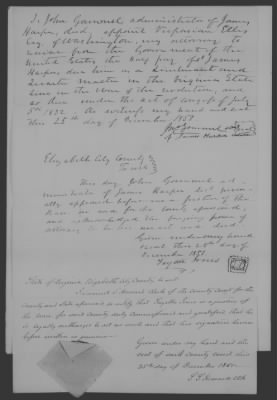 I, John Gammel administrator of James
Harper, decd, appoint Vespasian Ellis
Esq. of Washington, my attorney to
receive from the Government of the
United States the half pay of sd James
Harper due him as a Lieutenant and
Master in the Virginia State
line in the War of the revolution, and
so due under the act of Congress of July
5th 1832. As witness my hand and seal
this 25th day of December 1850
Jno Gammel
of James Harper
Elizabeth City County
To wit
This day John Gammel ad-
ministrator of James Harper decd person-
ally appeared before me a Justice of the
Peace in and for the county aforesaid,
and acknowledged the foregoing power of
attorney to be his act and deed
Given under my hand
and seal this 25th day of
December 1850.
Fayette Jones
State of Virginia Elizabeth City County to wit
I Howard Clerk of the County Court for the
County and State aforesaid do certify that Fayette Jones is a Justice of
the Peace for said County duly commissioned and qualified and that he
is legally authorized to act as such and that his signature herein
before written is genuine
Given under my hand and the
seal of said County Court this
25th day of December 1850.
Howard Clk